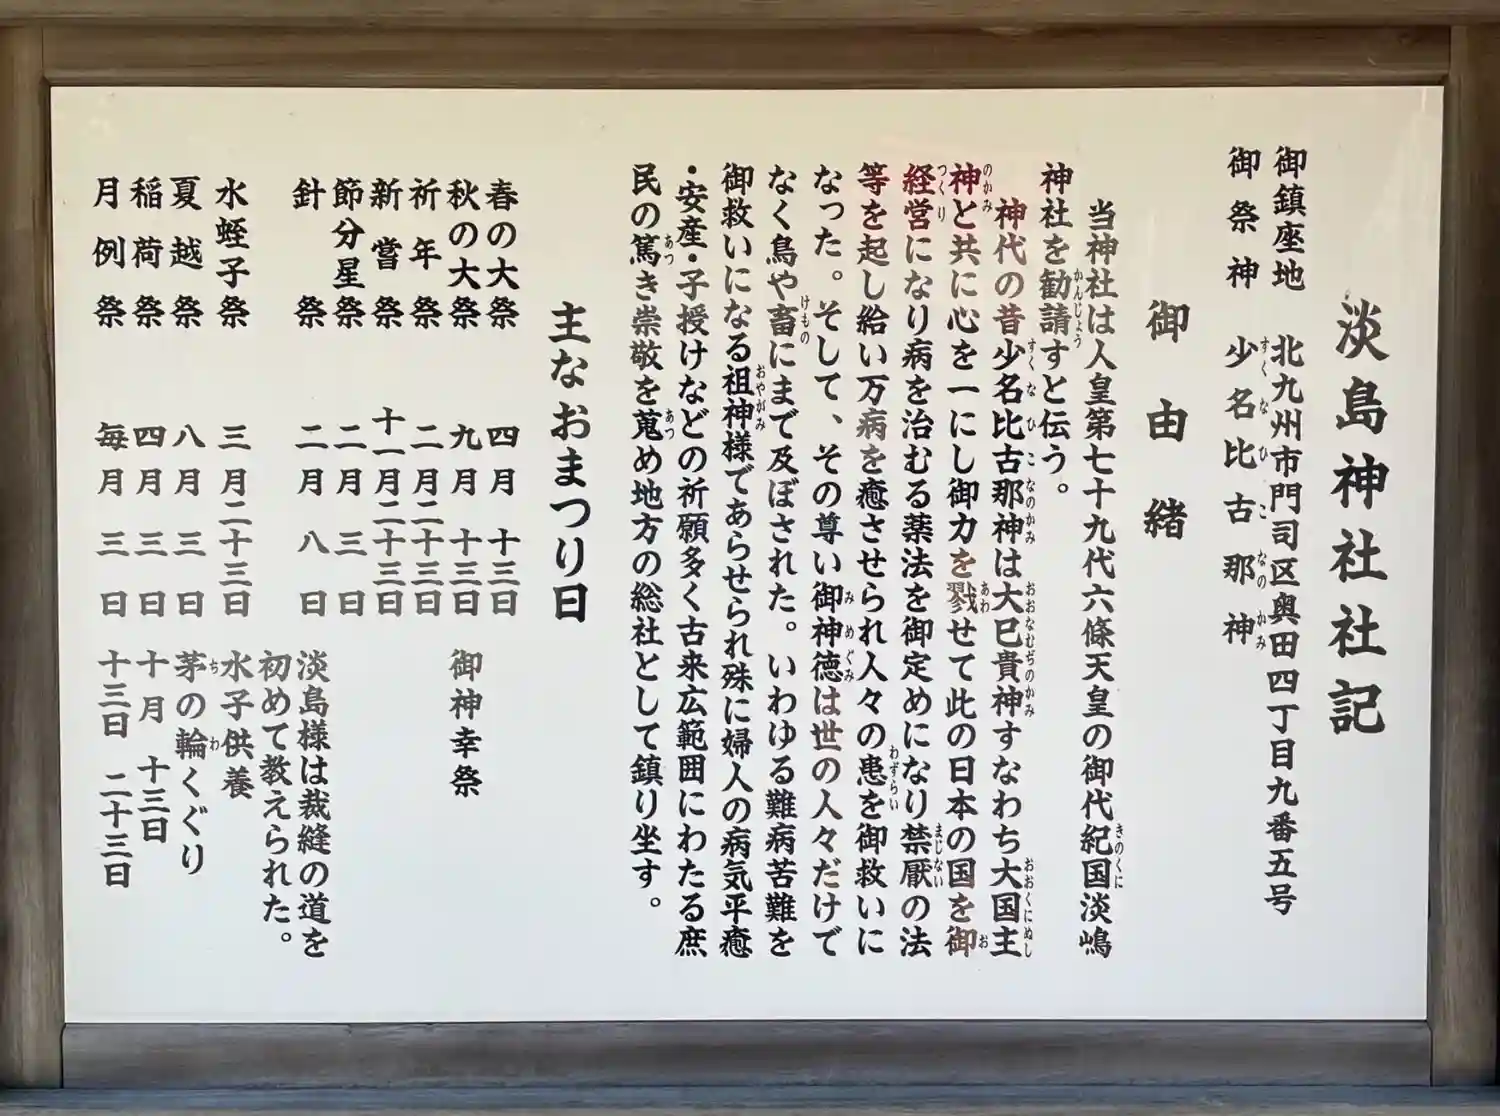 淡島神社社記
御鎮座地 北九州市門司区奥田四丁目九番五号
御祭神 少名比古那神
すくなひこなのかみ
御由緒
当神社は人皇第七十九代六條天皇の御代紀国淡嶋
きのくに
神社を勧請すと伝う。
かんじょう
神代の昔少名比古那神は大巳貴神すなわち大国主
すくなひこなのかみ おおなむぢのかみ おおくにぬし
神と共に心を一にし御力を戮せて此の日本の国を御
のかみ あわ お
経営になり病を治むる薬法を御定めになり禁厭の法
つくり まじない
等を起し給い万病を癒させられ人々の患を御救いに
わずらい
なった。そして、その尊い御神徳は世の人々だけで
みめぐみ
なく鳥や畜にまで及ぼされた。いわゆる難病苦難を
けもの
御救いになる祖神様であらせられ殊に婦人の病気平癒
おやがみ
・安産・子授けなどの祈願多く古来広範囲にわたる庶
民の篤き崇敬を蒐め地方の総社として鎮り坐す。
あつ あつ
主なおまつり日
春の大祭 四月十三日
秋の大祭 九月十三日 御神幸祭
祈年祭 二月二十三日
新嘗祭 十一月二十三日
節分星祭 二月三日
針祭 二月八日 淡島様は裁縫の道を
初めて教えられた。
水蛭子祭 三月二十三日 水子供養
夏越祭 八月三日 茅の輪くぐり
ちわ
稲荷祭 四月三日 十月十三日
月例祭 毎月三日 十三日 二十三日